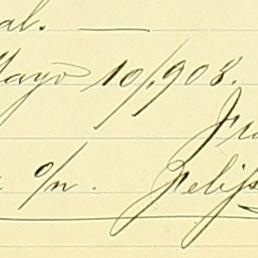 al. —
Mayo 10/1908.
Fr
o/n. Felips